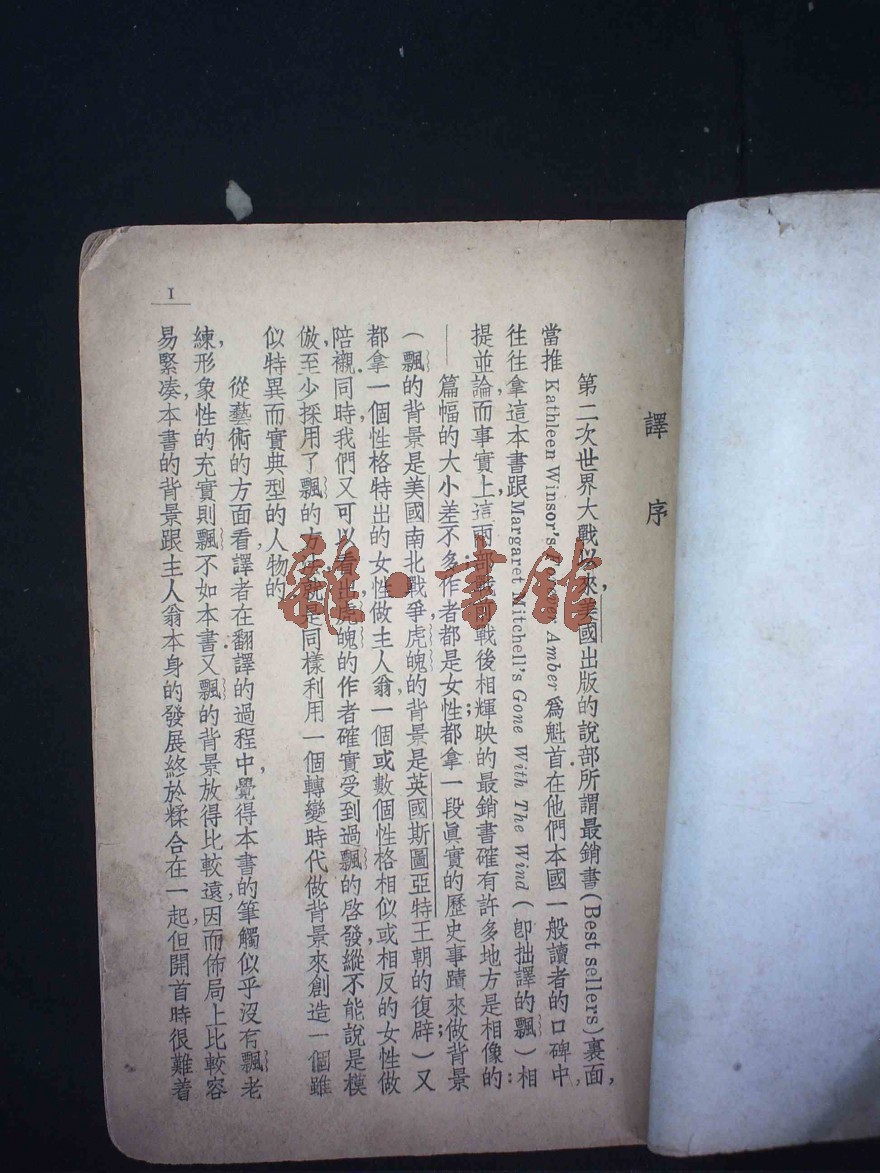 譯序
第二次世界大戰以來，美國出版的說部所謂最銷書(Best sellers)裏面，
當推Kathleen Winsor's Amber爲魁首在他們本國一般讀者的口碑中，
往往拿這本書跟Margaret Mitchell's Gone With The Wind(卽拙譯的飄)相
提並論，而事實上，這兩部戰前戰後相輝映的最銷書確有許多地方是相像的：
——篇幅的大小差不多；作者都是女性；都拿一段眞實的歷史事蹟來做背景
(飄的背景是美國南北戰爭，虎魄的背景是英國斯圖亞特王朝的復辟)；又
都拿一個性格特出的女性做主人翁，一個或數個性格相似或相反的女性做
陪襯。同時，我們又可以看出虎魄的作者確實受到過飄的啓發，縱不能說是模
倣，至少採用了飄的方法，就是同樣利用一個轉變時代做背景來創造一個雖
似特異而實典型的人物的。
從藝術的方面看，譯者在翻譯的過程中，覺得本書的筆觸似乎沒有飄老
練，形象性的充實則飄不如本書。又飄的背景放得比較遠，因而佈局上比較容
易緊凑，本書的背景跟主人翁本身的發展終於糅合在一起，但開首時很難着
1
雜·書館